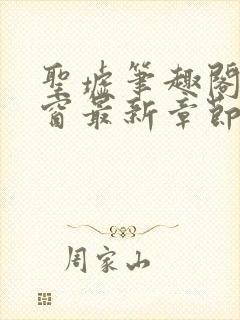 聖墟筆趣閣
窗最新章節
周家山